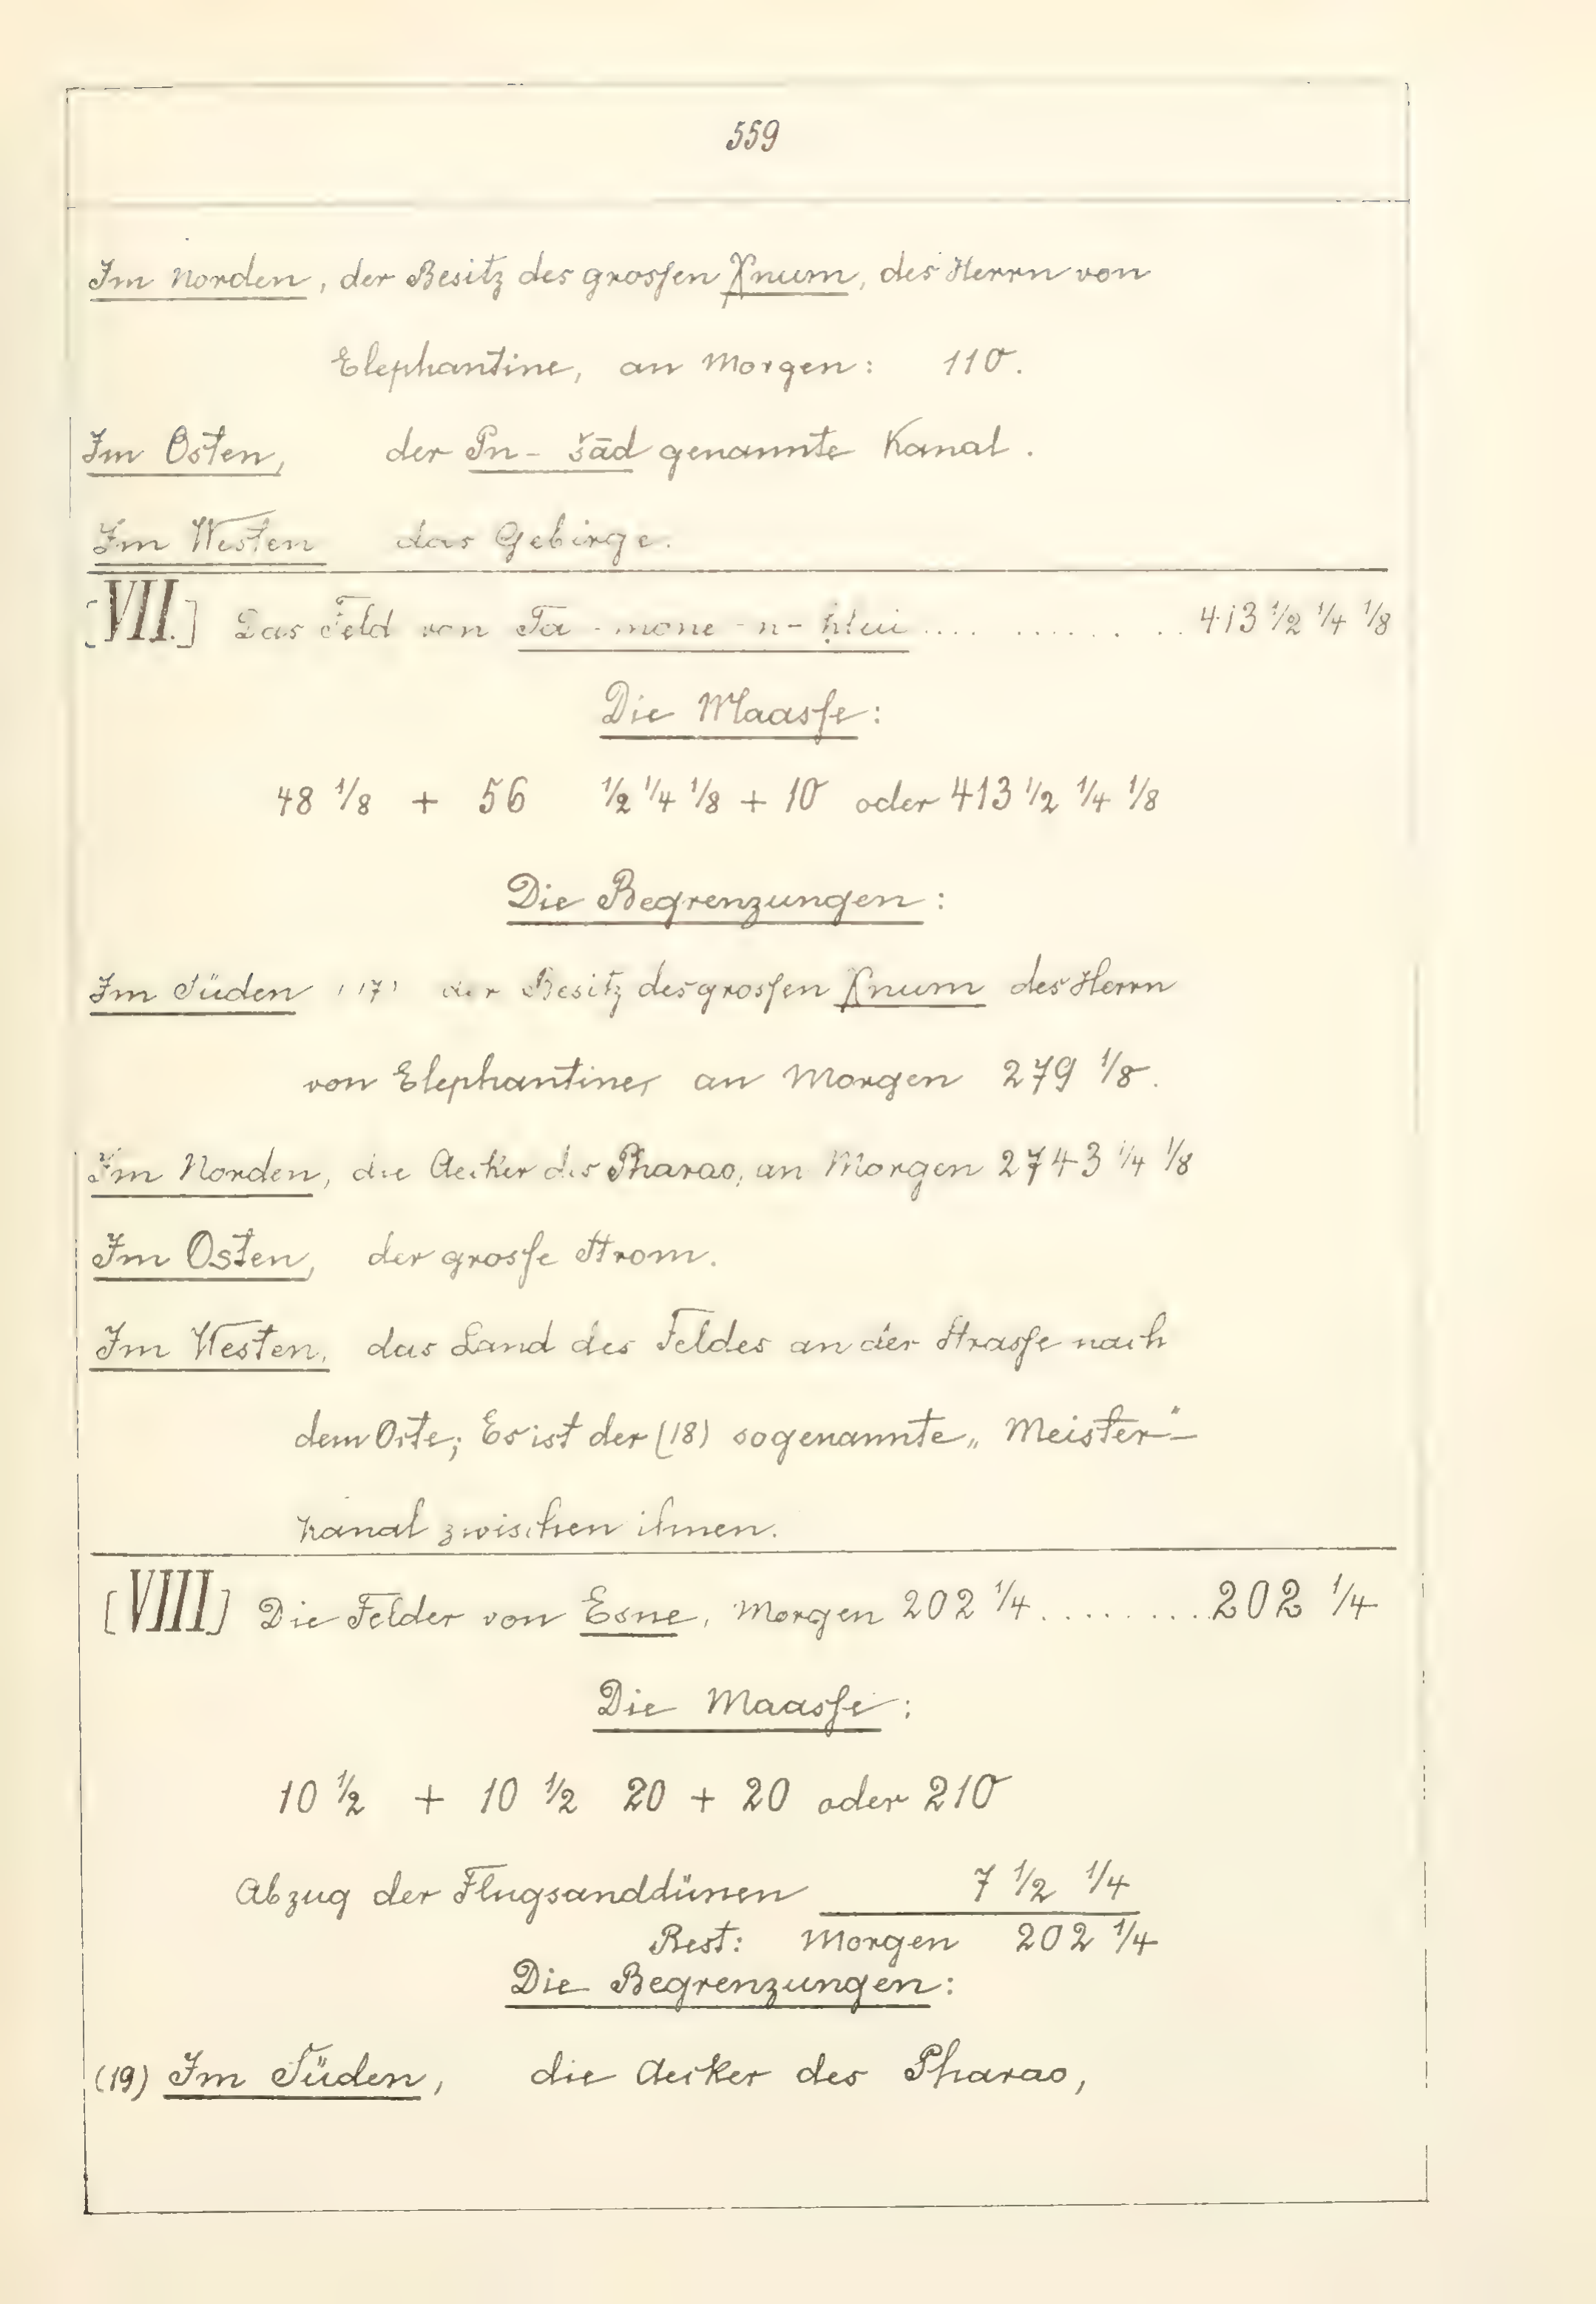 559
Im Norden, der Besitz des grossen Xnum, des Herrn von
Elephantine, an Morgen: 110.
Im Osten, der Pn-šād genannte Kanal.
Im Westen das Gebirge.
[VII.] Das Feld von Ta-mone-n- ............ 413 1/2 1/4 1/8
Die Maasse:
48 1/8 + 56 1/2 1/4 1/8 + 10 oder 413 1/2 1/4 1/8
Die Begrenzungen:
Im Süden (17) der Besitz des grossen Xnum des Herrn
von Elephantine, an Morgen 279 1/8.
Im Norden, die Aecker des Pharao, an Morgen 2743 1/4 1/8
Im Osten, der grosse Strom.
Im Westen, das Land des Feldes an der Strasse nach
dem Orte; Es ist der (18) sogenannte „Meister"-
kanal zwischen ihnen.
[VIII] Die Felder von Esne, Morgen 202 1/4.........202 1/4
Die Maasse:
10 1/2 + 10 1/2 20 + 20 oder 210
Abzug der Flugsanddünen 7 1/2 1/4
Rest: Morgen 202 1/4
Die Begrenzungen:
(19) Im Süden, die Aecker des Pharao,